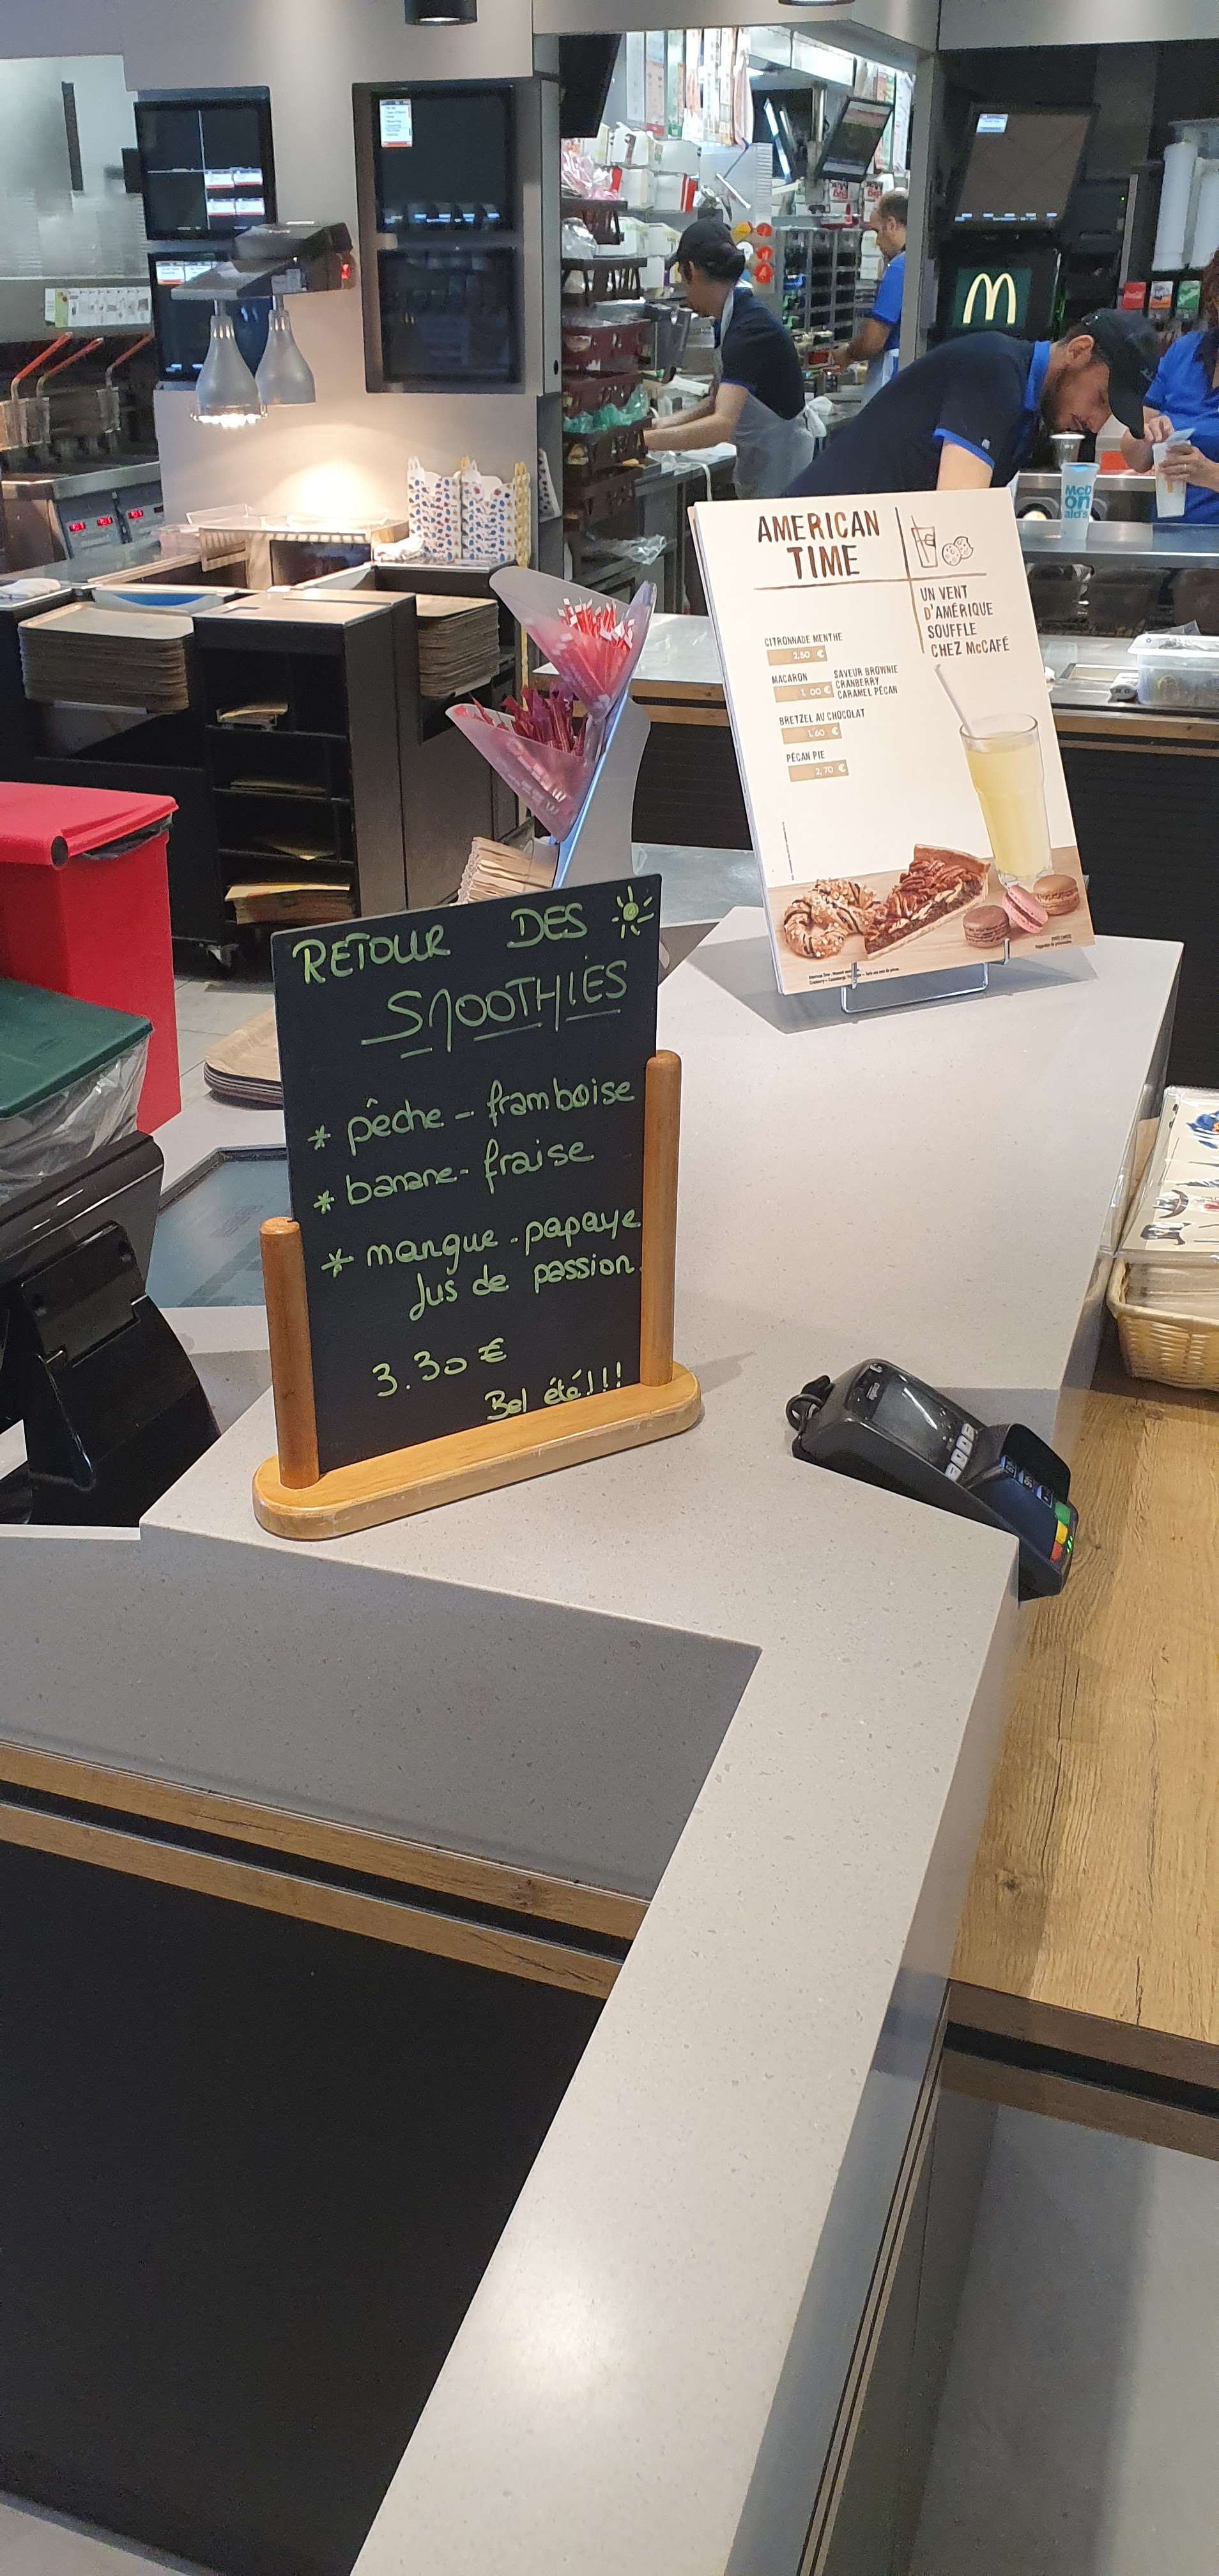 AMERICAN
TIME
UN VENT
D'AMÉRIQUE
SOUFFLE
CHEZ McCAFÉ
CITRONNADE MENTHE
2,50 €
MACARON SAVEUR BROWNIE
1,00 € CRANBERRY
CARAMEL PÉCAN
BRETZEL AU CHOCOLAT
1,60 €
PÉCAN PIE
2,70 €
McD
on
ald's
RETOUR DES
SMOOTHIES
* pêche - framboise
* banane - fraise
* mangue - papaye
Jus de passion.
3.30 €
Bel été!!!